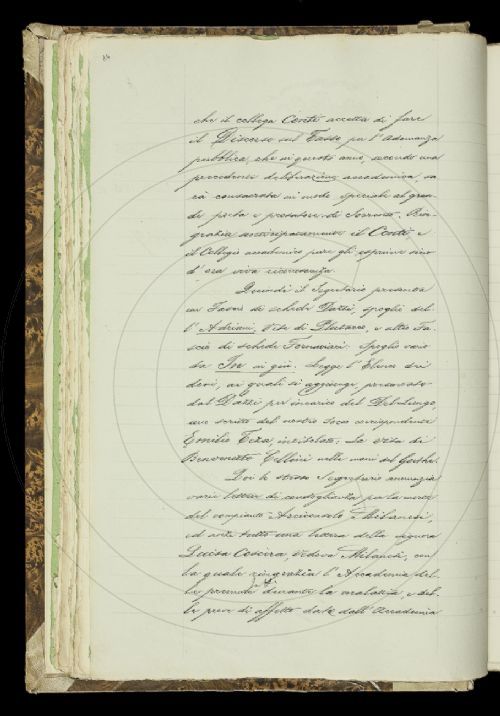 che il collega Conti accetta di fare
il Discorso sul Tasso per l'Adunanza
pubblica, che in questo anno, secondo una
precedente deliberazione accademica, sa
rà consacrata in modo speciale al gran
de poeta e prosatore di Sorrento. Rin
grazia anticipatamente il Conti, e
il Collegio accademico pure gli esprime sino
d'ora viva riconoscenza.
Quindi il Segretario presenta
un Fascio di schede Dazzi, spoglio del
l'Adriani, Vite di Plutarco, e altro Fa
scio di schede Tornavisi. Spoglio vario
da In in giù. Legge l'Elenco dei
doni, ai quali si aggiunge presentato
dal Dazzi per incarico del
uno scritto del nostro socio corrispondente
Emilio Teza, intitolato: La vita di
Benvenuto Cellini nelle mani del Goethe.
Poi lo stesso Segretario annunzia
varie lettere di condoglianza per la morte
del compianto Arciconsolo Milanesi,
ed anzi tutto una lettera della signora
Luisa vedova Milanesi, con
la quale ringrazia l'Accademia del
le premure durante la malattia, e del
le prove di affetto date dall'Accademia